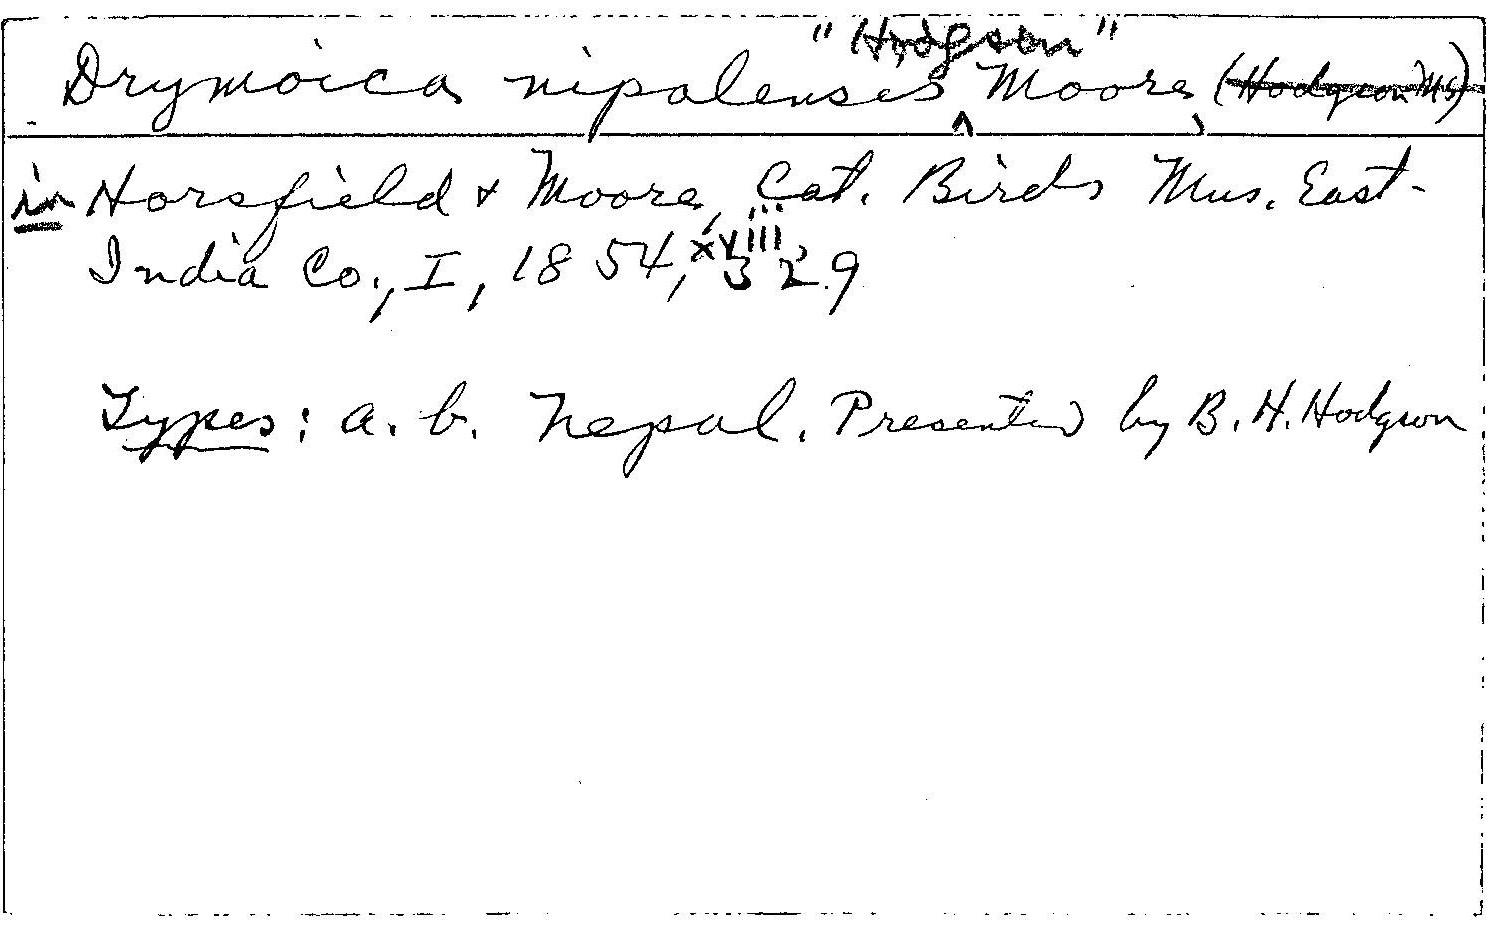 Drymoica nipalensis "Hodgson" Moore, (Hodgson MS)
in Horsfield & Moore, Cat. Birds Mus. East-
India Co., I, 1854, xviii 329
Types: a. b. Nepal. Presented by B. H. Hodgson